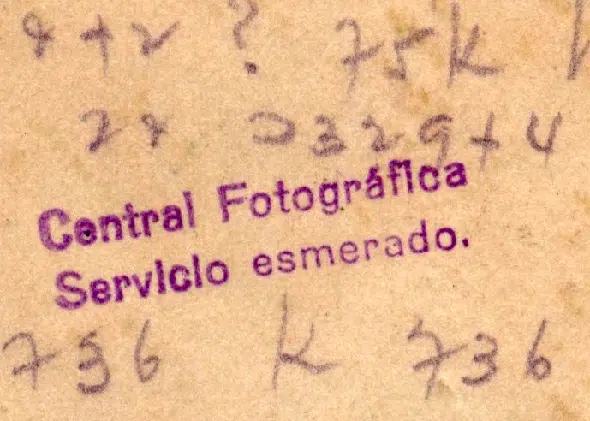 ? 75K
329+4
Central Fotográfica
Servicio esmerado.
736 K 736